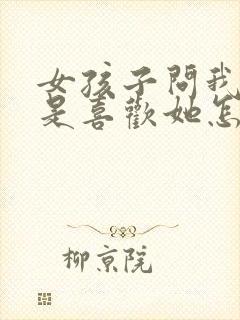 女孩子問我
是喜歡她怎
柳京院